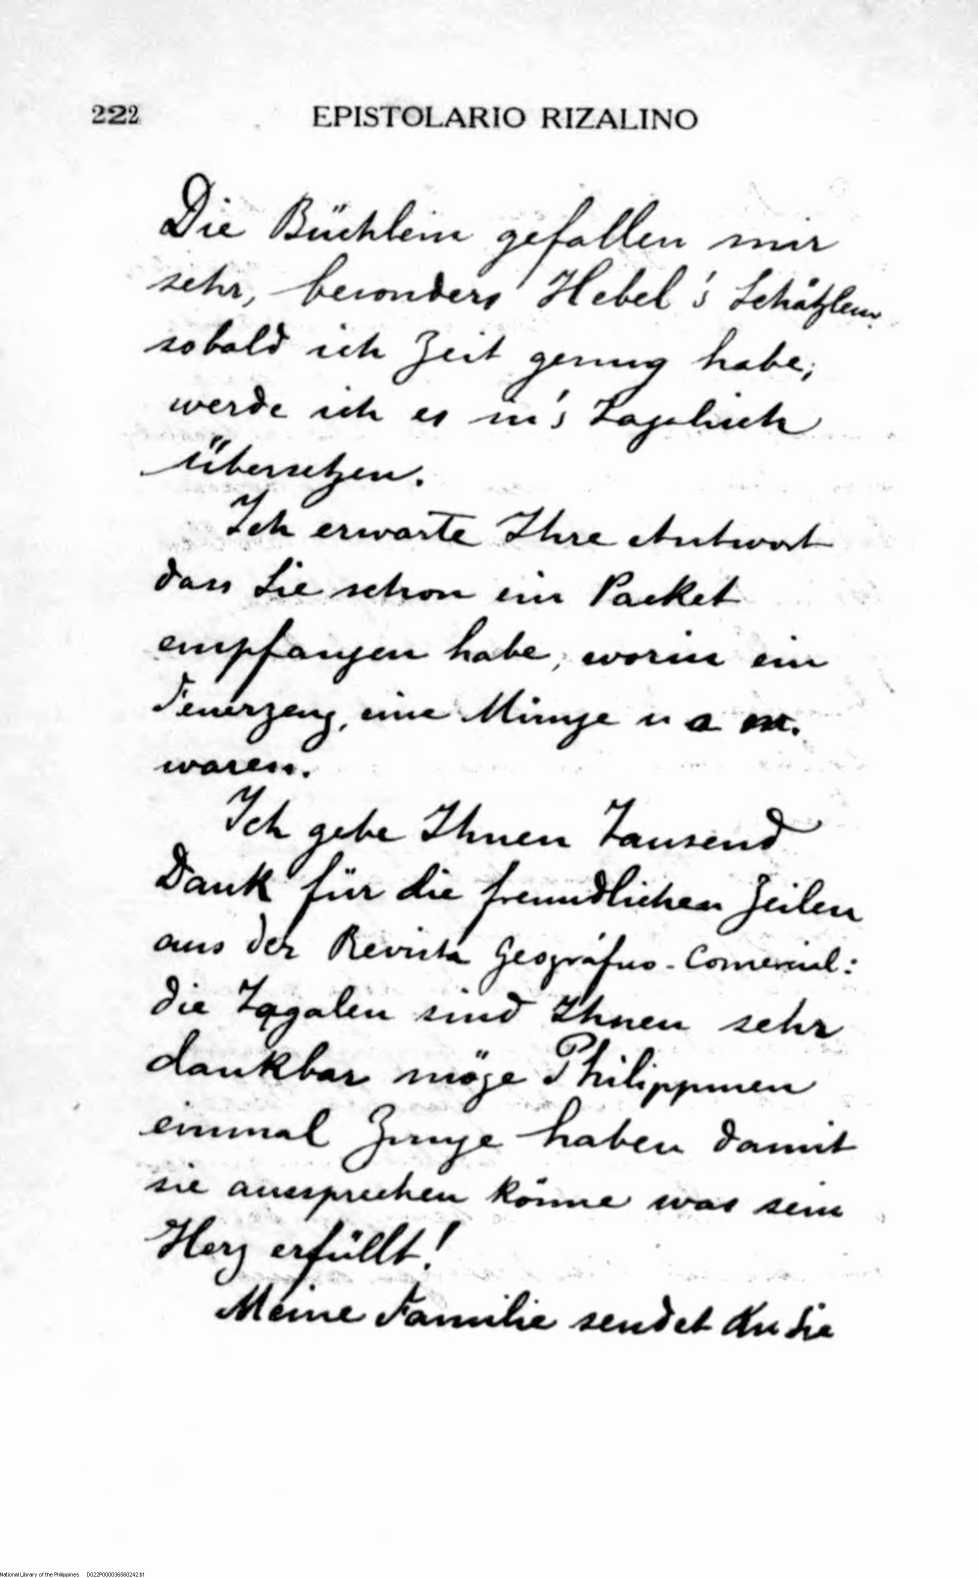 222 EPISTOLARIO RIZALINO
Die Büchlein gefallen mir
sehr, besonders Hebel's Schätzlein
sobald ich Zeit genug habe,
werde ich es in's Tagalisch
übersetzen.
Ich erwarte Ihre Antwort
dass Sie schon ein Packet
empfangen habe, worin ein
Feuerzeug, eine Münze u a m.
waren.
Ich gebe Ihnen Tausend
Dank für die freundlichen Zeilen
aus der Revista Geográfico-Comercial:
die Tagalen sind Ihnen sehr
dankbar möge Philippinen
einmal Zunge haben damit
sie aussprechen könne was sein
Herz erfüllt!
Meine Familie sendet An Sie
National Library of the Philippines